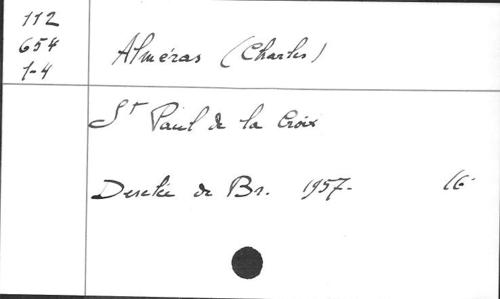 112
654
1-4
Alméras (Charles)
St Paul de la Croix
Desclée de Br. 1957- 16